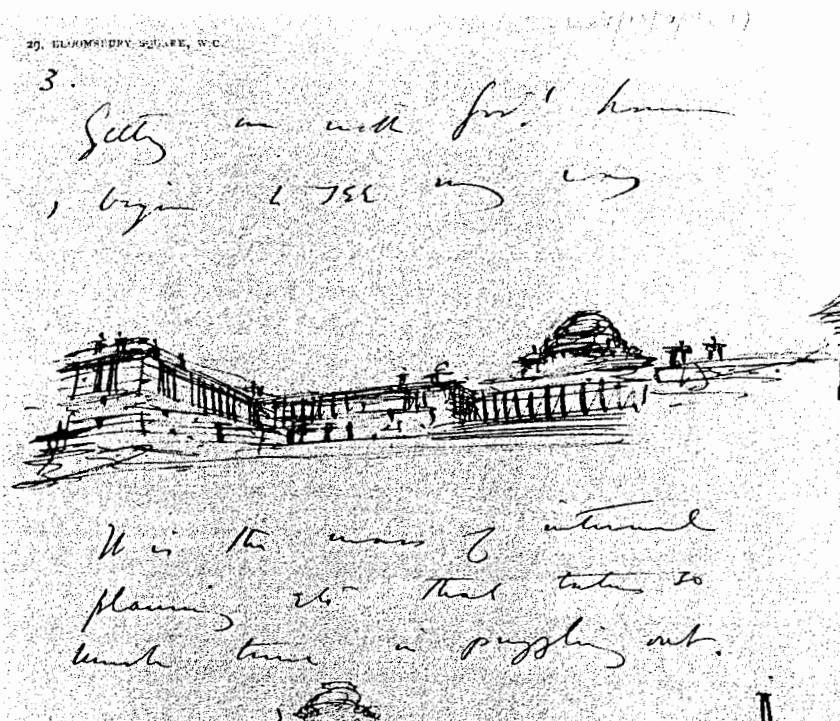 29, BLOOMSBURY SQUARE, W.C.
3.
Getting on with Gov.t house
I begin to see my way
It is the mass of internal
planning etc that takes so
much time in puzzling out.